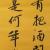 有把酒問
是何年